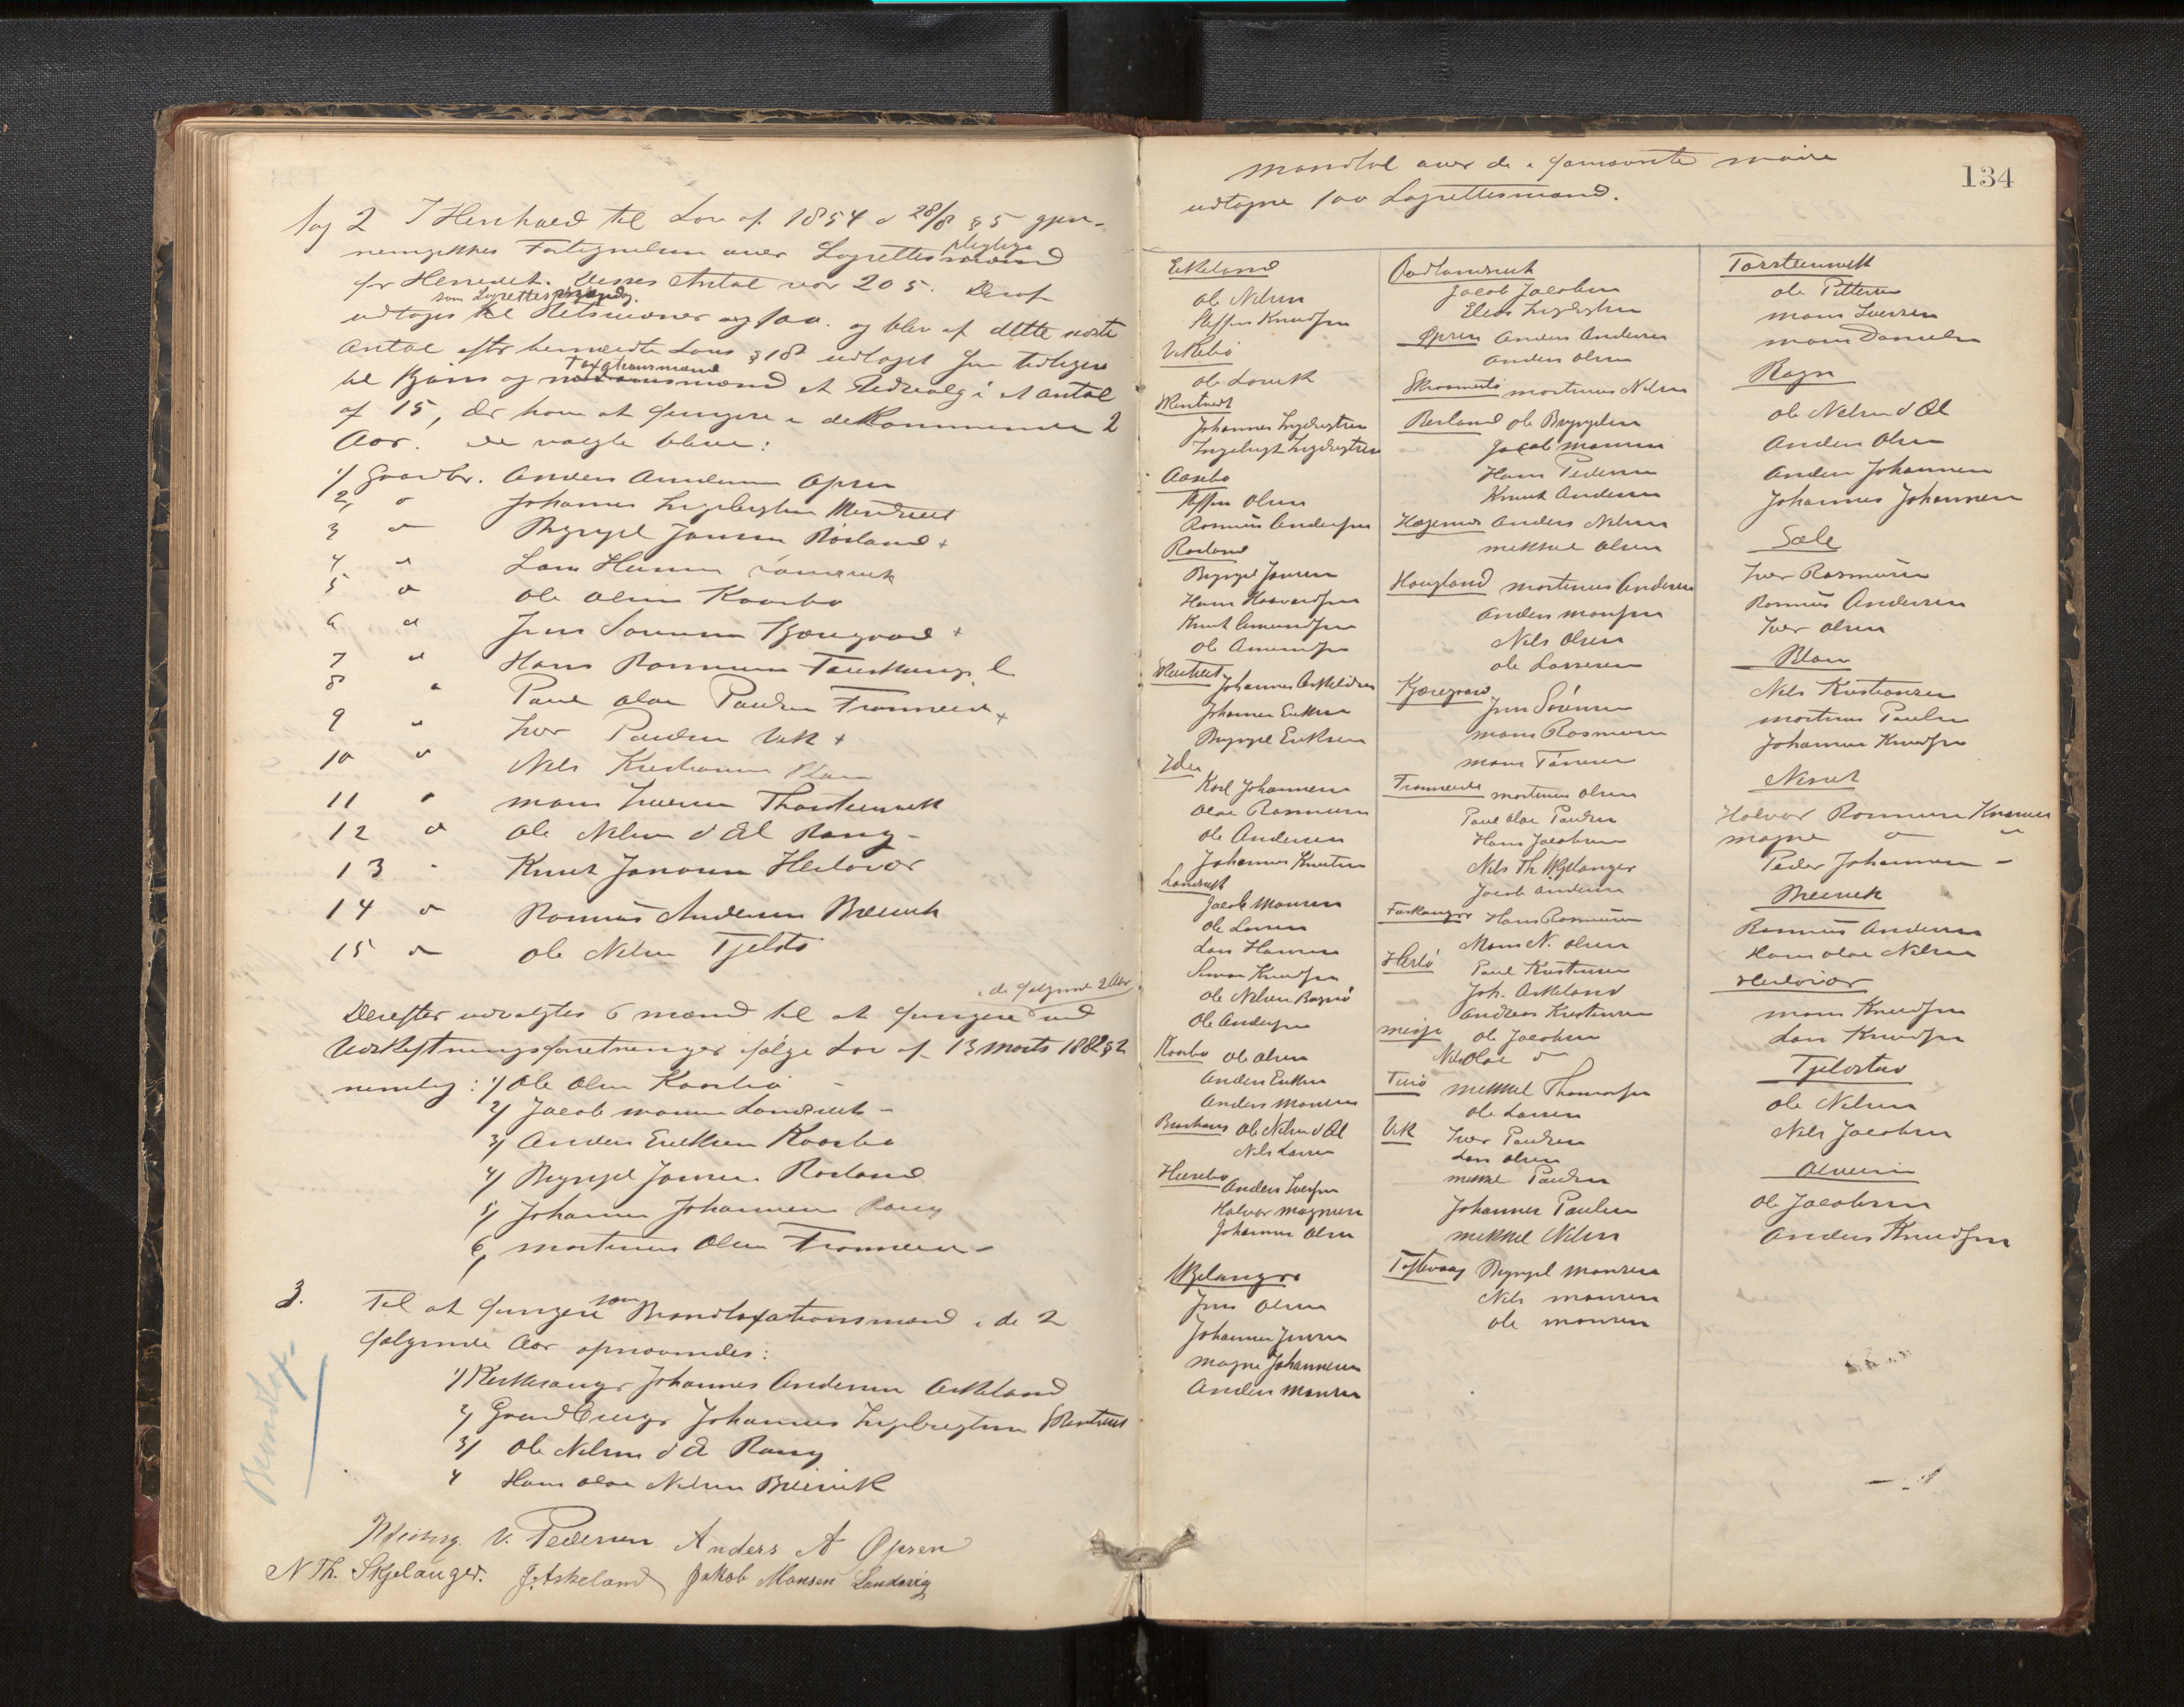 Sag 2 I Henhold til Lov af 1854 d 28/8 § 5 gjen-
nemgikkes Fortegnelsen over Lagrettes pligtige
for Herredet. Disses Antal var 205. Deraf
som Lagrettesmænd
udtoges til 100. og blev af dette sidste
Antal efter bemeldte Lovs § 18 udtaget
Taxationsmænd
til Skjøns og mænd et Udvalg i et antal
af 15, der have at fungere i de kommende 2
Aar. De valgte bleve:
1/ Gaardbr. Anders Andersen Opsen
2, " Johannes Ingebrigtsen
3 " Brynjel Jansen Rosland +
4 " Lars Hansen Landsvik
5 " Ole Olsen Kaarbø
6 " Jens Sørensen Kjæregaard +
7 " Hans Rasmusen
8 " Paul Olai Paulsen Fromreide +
9 " Iver Paulsen Vik +
10 " Nils Kristiansen Blom
11 " Mons Iversen Thorsteinsvik
12 " Ole Nilsen d Æl Rong
13 " Knut Jansen Herløvær
14 " Rasmus Andersen Breivik
15 " Ole Nilsen Tjeldstø
i de følgende 2 Aar
Derefter udvalgtes 6 mænd til at fungere ved
Udskiftningsforretninger ifølge Lov af 13 Marts 1882 § 2
nemlig: 1/ Ole Olsen Kaarbø
2/ Jacob Monsen Landsvik
3/ Anders Eriksen Kaarbø
4/ Brynjel Jansen Rosland
5/ Johannes Johannesen Rong
6, Mortinus Olsen Fromreide
3. Til at fungere som Brandtaxationsmænd i de 2
følgende Aar opnævnedes:
Brandtax-
1/ Kirkesanger Johannes Andersen Askeland
2/ Gaardbruger Johannes Ingebrigtsen
3/ Ole Nilsen d Æ Rong
4 Hans Olai Nilsen Breivik
V. Pedersen Anders A Opsen
N Th. Skjelanger. J. Askeland Jakob Monsen Landsvig
134
Mandtal over de
udtagne 100 Lagrettesmænd.
Ekeland
Ole Nilsen
Steffen Knudsen
Vikebø
Ole Larsen
Johannes Ingebrigtsen
Ingebrigt Ingebrigtsen
Aasebø
Steffen Olsen
Rasmus Andersen
Rosland
Brynjel Jansen
Hans Haavardsen
Knut Amundsen
Ole Amundsen
Johannes Askildsen
Johannes Eriksen
Brynjel Eriksen
Karl Johannesen
Olai Rasmusen
Ole Andersen
Johannes Knutsen
Landsvik
Jacob Monsen
Ole Larsen
Lars Hansen
Simon Knudsen
Ole Nilsen Bognø
Ole Andersen
Kaarbø Ole Olsen
Anders Eriksen
Anders Monsen
Ole Nilsen d Æl
Nils Larsen
Anders Iversen
Halvor Magnesen
Johannes Olsen
Skjelanger
Jens Olsen
Johannes Jensen
Magne Johannesen
Anders Monsen
Jacob Jacobsen
Elias Ingebrigtsen
Opsen Anders Andersen
Anders Olsen
Mortinus Nilsen
Berland Ole Brynjelsen
Jacob Monsen
Hans Pedersen
Knut Andersen
Hagenes Anders Nilsen
Mikkel Olsen
Haugland Mortinus Andersen
Anders Monsen
Nils Olsen
Ole Larsen
Kjæregaard
Jens Sørensen
Mons Rasmusen
Mons Tønesen
Fromreide Mortinus Olsen
Paul Olai Paulsen
Hans Jacobsen
Nils Th. Skjelanger
Jacob Andersen
Hans Rasmusen
Mons N. Olsen
Herlø Paul Kristensen
Joh. Askeland
Andreas Kristensen
Misje Ole Jacobsen
Nils Olai "
Turø Mikkel Thomassen
Ole Larsen
Vik Iver Paulsen
Lars Olsen
Mikkel Paulsen
Johannes Paulsen
Mikkel Nilsen
Toftevaag Brynjel Monsen
Nils Monsen
Ole Monsen
Torsteinsvik
Ole Pettersen
Mons Iversen
Mons Danielsen
Rong
Ole Nilsen d Æl
Anders Olsen
Anders Johannesen
Johannes Johannesen
Sæle
Iver Rasmusen
Rasmus Andersen
Iver Olsen
Blom
Nils Kristiansen
Mortinus Paulsen
Johannes Knudsen
Nesset
Halvor Rasmusen
Magne " "
Peder Johannesen "
Breivik
Rasmus Andersen
Hans Olai Nilsen
Herløvær
Mons Knudsen
Lars Knudsen
Tjeldstø
Ole Nilsen
Nils Jacobsen
Alveim
Ole Jacobsen
Anders Knudsen